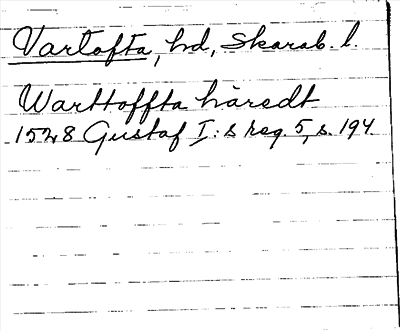 Vartofta, hd, Skarab. l.
Warttoffta häredt
1528 Gustaf I:s reg. 5, s. 194